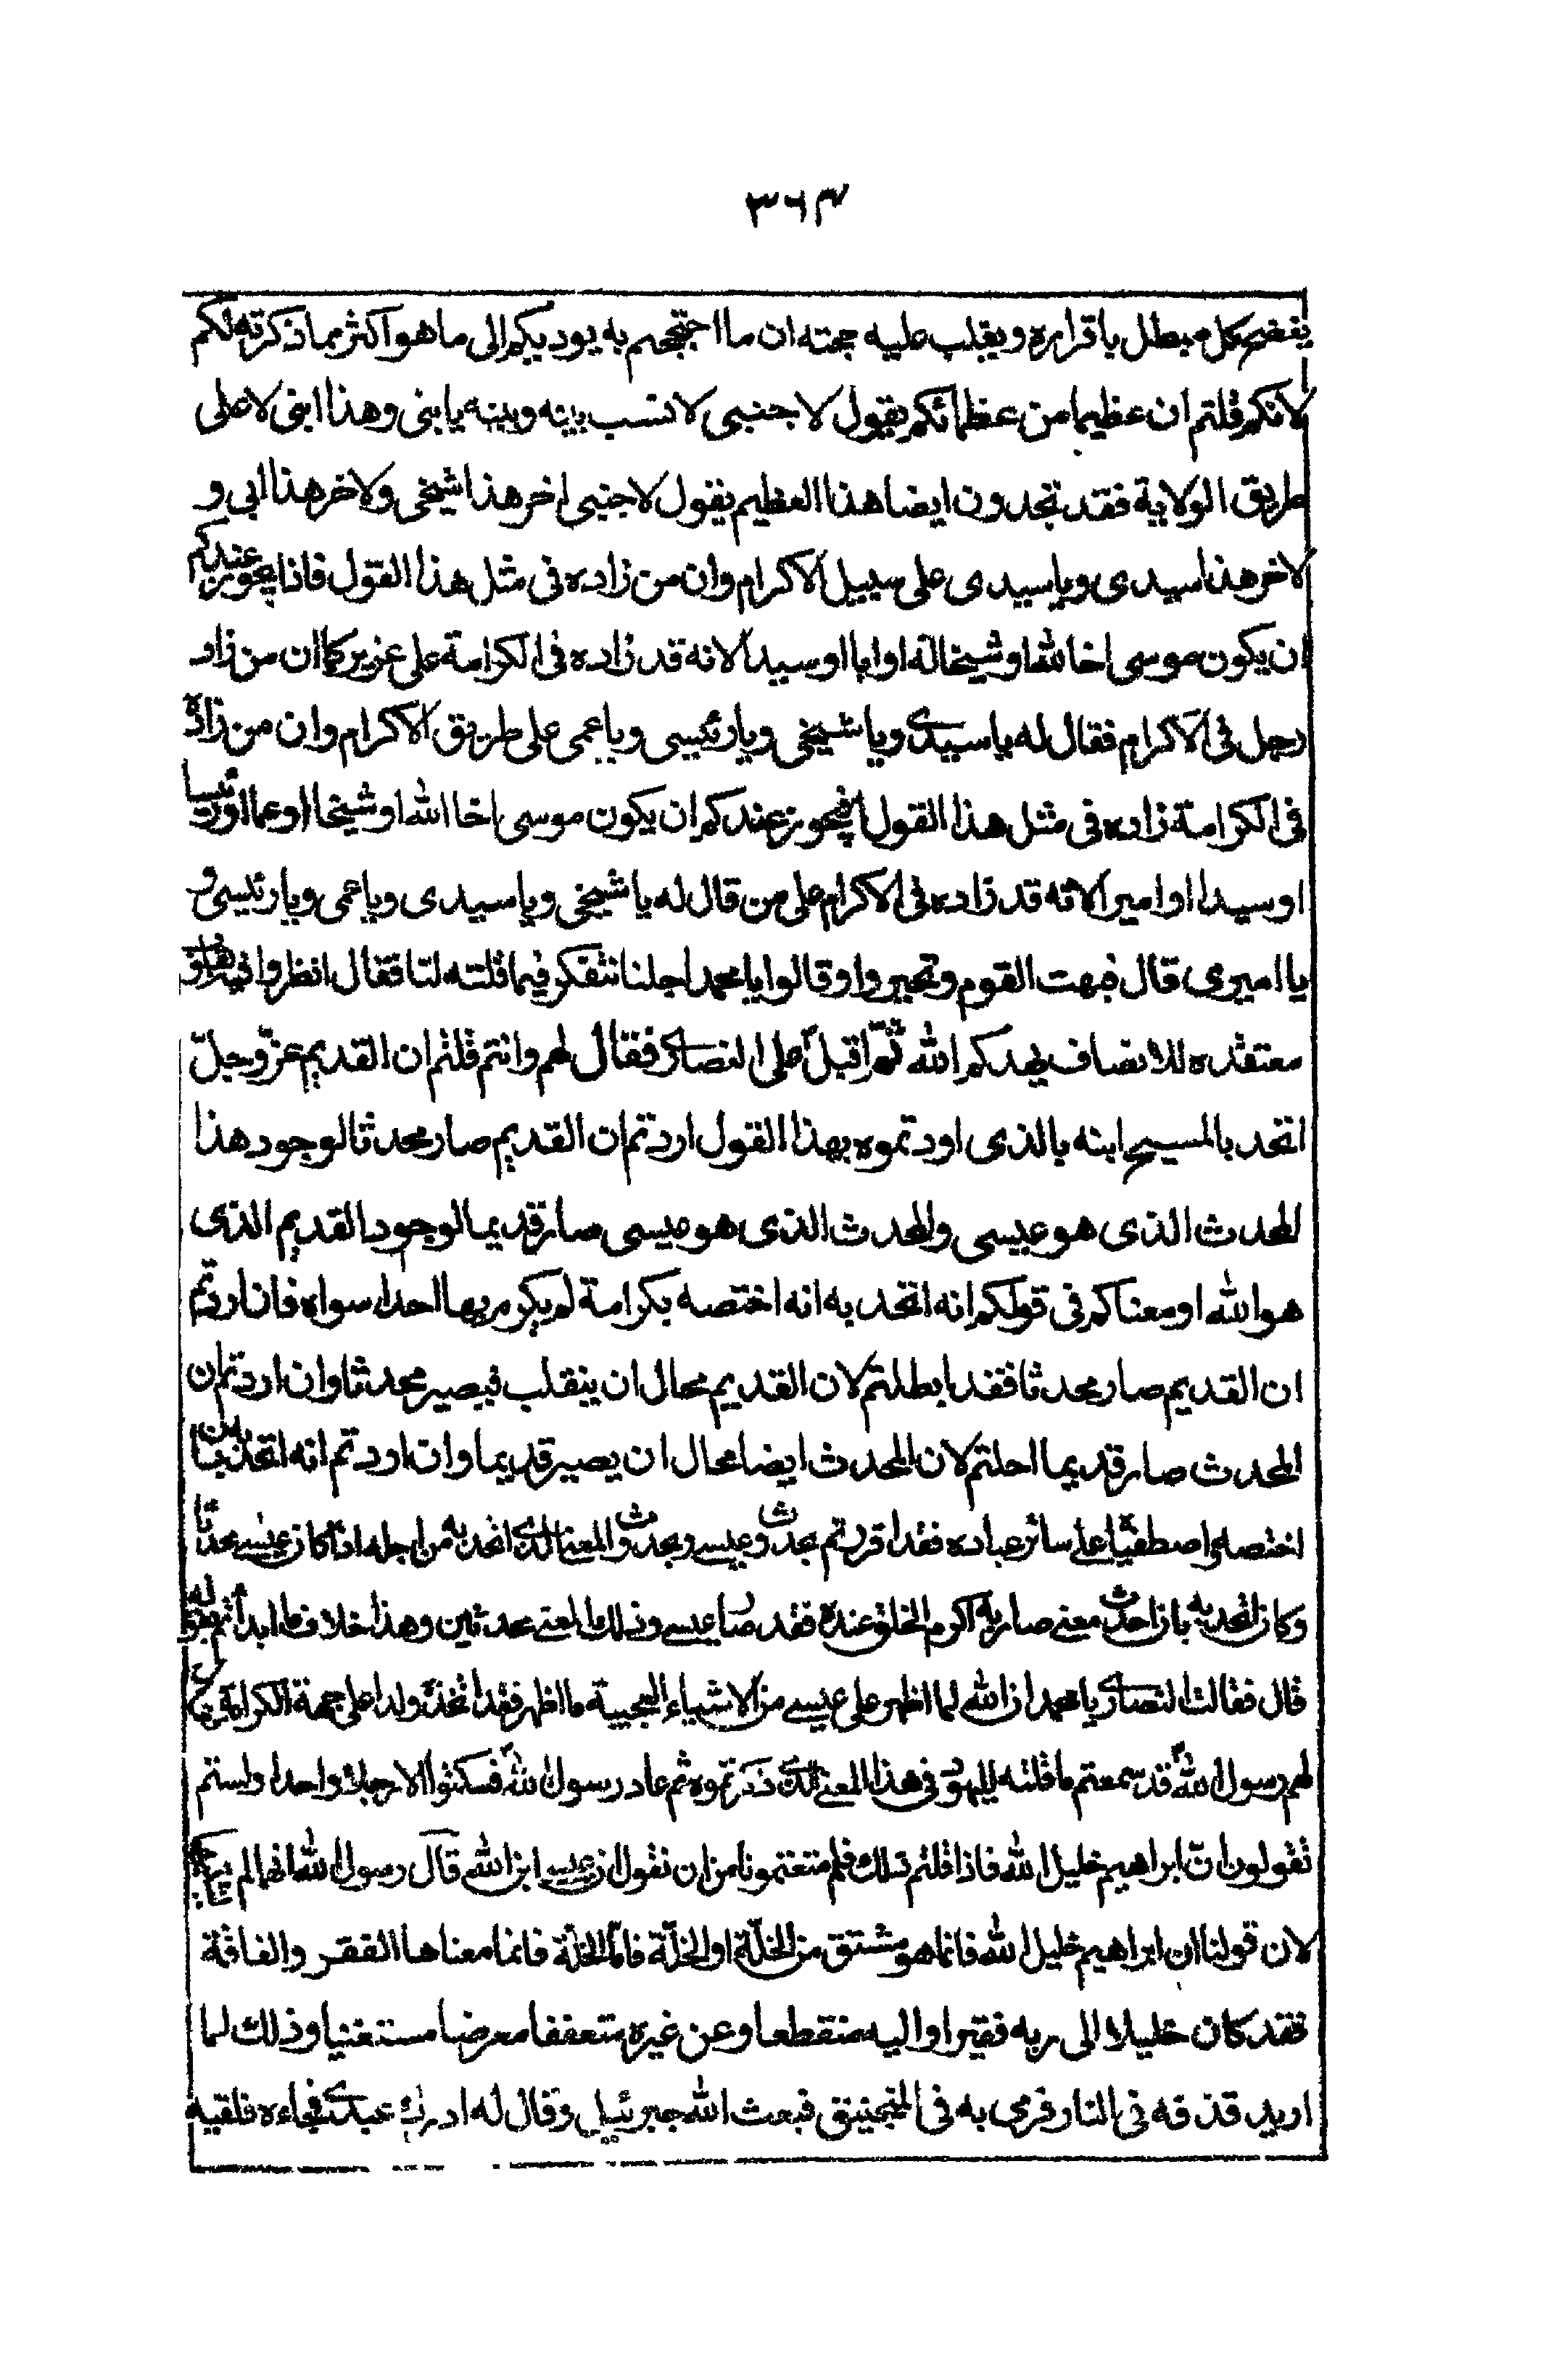 ٣٦٣
يفضح كل مبطل باقراره ويقلب عليه حجته ان ما احتججتم به يوديكم الى ما هو اكثر مما ذكرته لكم
لانكم قلتم ان عظيما من عظمائكم يقول لاجنبى لا نسب بينه وبينه يا بنى وهذا ابنى لا على
طريق الولادة فقد تجدون ايضا هذا العظيم يقول لاجنبى اخر هذا شيخى ولاخر هذا ابى و
لاخر هذا سيدى ويا سيدى على سبيل الاكرام وان من زاده فى مثل هذا القول فاذا يجوز عندكم
ان يكون موسى اخا لله او شيخا له او ابا او سيدا لانه قد زاده فى الكرامة على عزير كما ان من زاد
رجل فى الاكرام فقال له يا سيدى ويا شيخى ويا رئيسى ويا عمى على طريق الاكرام وان من زاده
فى الكرامة زاده فى مثل هذا القول افيجوز عندكم ان يكون موسى اخا الله او شيخا او عما او رئيسا
او سيدا او اميرا لانه قد زاده فى الاكرام على من قال له يا شيخى ويا سيدى ويا عمى ويا رئيسى و
يا اميرى قال فبهت القوم وتحيروا وقالوا يا محمد اجلنا نتفكر فيما قلته لنا فقال انظروا فيه
معتقده للانصاف يهدكم الله ثمّ اقبل على النصارى فقال لهم وانتم قلتم ان القديم عزّ وجلّ
اتحد بالمسيح ابنه بالذى اردتموه بهذا القول اردتم ان القديم صار محدثا لوجود هذا
المحدث الذى هو عيسى والمحدث الذى هو عيسى صار قديما لوجود القديم الذى
هو الله او معناكم فى قولكم انه اتحد به انه اختصه بكرامة لم يكرم بها احدا سواه فان اردتم
ان القديم صار محدثا فقد ابطلتم لان القديم محال ان ينقلب فيصير محدثا وان اردتم ان
المحدث صار قديما احلتم لان المحدث ايضا محال ان يصير قديما وان اردتم انه اتحد به بان
اختصه واصطفاه على سائر عباده فقد اقررتم بحدوث عيسى وبحدوث المعنى الذى اتحد به من اجله لانه اذا كان عيسى محدثا
وكان اتحد به بان احدث معنى صار به اكرم الخلق عنده فقد صار عيسى وذلك المعنى محدثين وهذا خلاف ما ابدأتم
قال فقالت النصارى يا محمد ان الله لما اظهر على عيسى من الاشياء العجيبة ما اظهر فقد اتخذه ولدا على جهة الكرامة
لهم رسول الله قد سمعتم ما قلته لليهود فى هذا المعنى الذى ذكرتموه ثم عاد رسول الله فسكتوا الا رجلا واحدا ولستم
تقولون انّ ابراهيم خليل الله فاذا قلتم ذلك فلم منعتمونا من ان نقول ان عيسى ابن الله قال رسول الله انهما لم
لان قولنا ان ابراهيم خليل الله فانما هو مشتق من الخلّة او الخلّة فامّا الخلّة فانما معناها الفقر والفاقة
فقد كان خليلا الى ربه فقيرا واليه منقطعا وعن غيره متعففا معرضا مستغنيا وذلك لما
اريد قذفه فى النار فرمى به فى المنجنيق فبعث الله جبرئيل وقال له ادرك عبدى فجاءه فلقيه